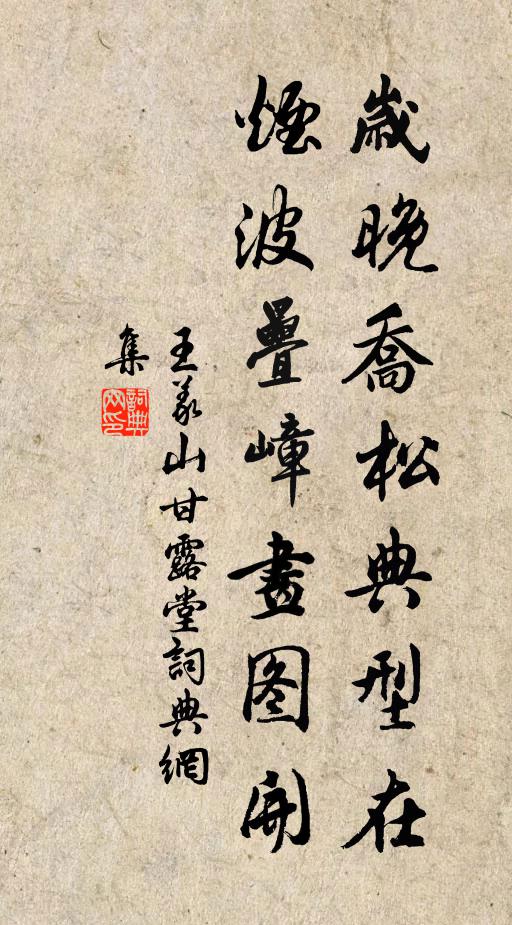 歲晚喬松典型在
煙波疊嶂畫图開
王義山甘露堂詞典網
集
詞典网印